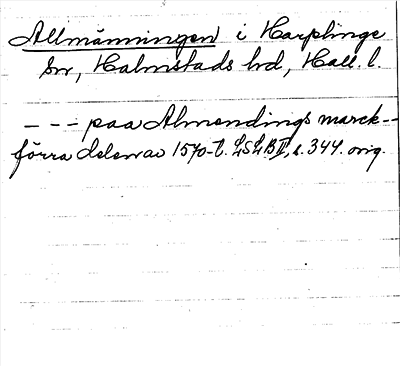 Allmänningen i Harplinge
sn, Halmstads hd, Hall. l.
--- paa Almendings marck--
förra delen av 1570-t. LSLB II, s. 344. orig.